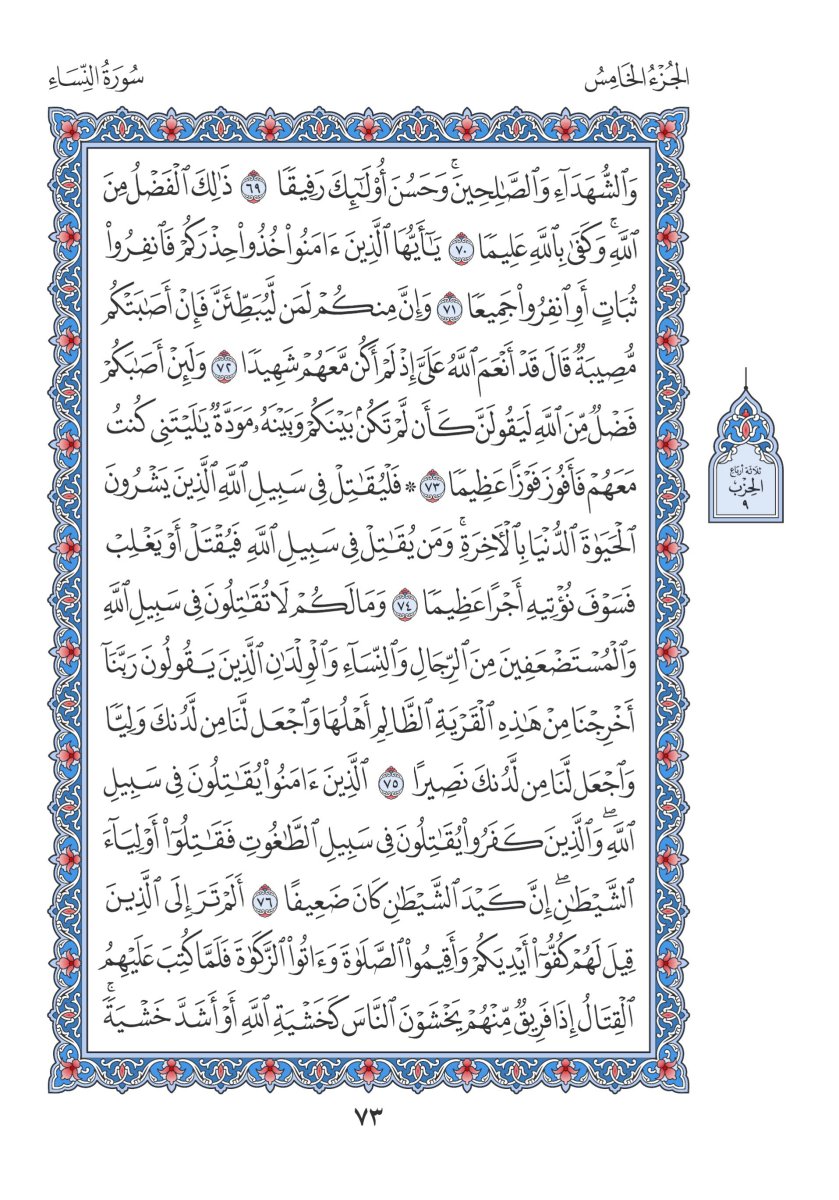 الجُزْءُ الخَامِسُ
سُورَةُ النِّسَاءِ
وَٱلشُّهَدَآءِ وَٱلصَّـٰلِحِينَۚ وَحَسُنَ أُوْلَـٰٓئِكَ رَفِيقًا ٦٩ ذَٰلِكَ ٱلْفَضْلُ مِنَ
ٱللَّهِۚ وَكَفَىٰ بِٱللَّهِ عَلِيمًا ٧٠ يَـٰٓأَيُّهَا ٱلَّذِينَ ءَامَنُواْ خُذُواْ حِذْرَكُمْ فَٱنفِرُواْ
ثُبَاتٍ أَوِ ٱنفِرُواْ جَمِيعًا ٧١ وَإِنَّ مِنكُمْ لَمَن لَّيُبَطِّئَنَّ فَإِنْ أَصَـٰبَتْكُم
مُّصِيبَةٌ قَالَ قَدْ أَنْعَمَ ٱللَّهُ عَلَيَّ إِذْ لَمْ أَكُن مَّعَهُمْ شَهِيدًا ٧٢ وَلَئِنْ أَصَـٰبَكُمْ
فَضْلٌ مِّنَ ٱللَّهِ لَيَقُولَنَّ كَأَن لَّمْ تَكُنۢ بَيْنَكُمْ وَبَيْنَهُۥ مَوَدَّةٌ يَـٰلَيْتَنِي كُنتُ
مَعَهُمْ فَأَفُوزَ فَوْزًا عَظِيمًا ٧٣ * فَلْيُقَـٰتِلْ فِي سَبِيلِ ٱللَّهِ ٱلَّذِينَ يَشْرُونَ
ٱلْحَيَوٰةَ ٱلدُّنْيَا بِٱلْأٓخِرَةِۚ وَمَن يُقَـٰتِلْ فِي سَبِيلِ ٱللَّهِ فَيُقْتَلْ أَوْ يَغْلِبْ
فَسَوْفَ نُؤْتِيهِ أَجْرًا عَظِيمًا ٧٤ وَمَا لَكُمْ لَا تُقَـٰتِلُونَ فِي سَبِيلِ ٱللَّهِ
وَٱلْمُسْتَضْعَفِينَ مِنَ ٱلرِّجَالِ وَٱلنِّسَآءِ وَٱلْوِلْدَٰنِ ٱلَّذِينَ يَقُولُونَ رَبَّنَآ
أَخْرِجْنَا مِنْ هَـٰذِهِ ٱلْقَرْيَةِ ٱلظَّالِمِ أَهْلُهَا وَٱجْعَل لَّنَا مِن لَّدُنكَ وَلِيًّا
وَٱجْعَل لَّنَا مِن لَّدُنكَ نَصِيرًا ٧٥ ٱلَّذِينَ ءَامَنُواْ يُقَـٰتِلُونَ فِي سَبِيلِ
ٱللَّهِۖ وَٱلَّذِينَ كَفَرُواْ يُقَـٰتِلُونَ فِي سَبِيلِ ٱلطَّـٰغُوتِ فَقَـٰتِلُوٓاْ أَوْلِيَآءَ
ٱلشَّيْطَـٰنِۖ إِنَّ كَيْدَ ٱلشَّيْطَـٰنِ كَانَ ضَعِيفًا ٧٦ أَلَمْ تَرَ إِلَى ٱلَّذِينَ
قِيلَ لَهُمْ كُفُّوٓاْ أَيْدِيَكُمْ وَأَقِيمُواْ ٱلصَّلَوٰةَ وَءَاتُواْ ٱلزَّكَوٰةَ فَلَمَّا كُتِبَ عَلَيْهِمُ
ٱلْقِتَالُ إِذَا فَرِيقٌ مِّنْهُمْ يَخْشَوْنَ ٱلنَّاسَ كَخَشْيَةِ ٱللَّهِ أَوْ أَشَدَّ خَشْيَةًۚ
ثلاثة أرباع
الحِزْب
٩
٧٣